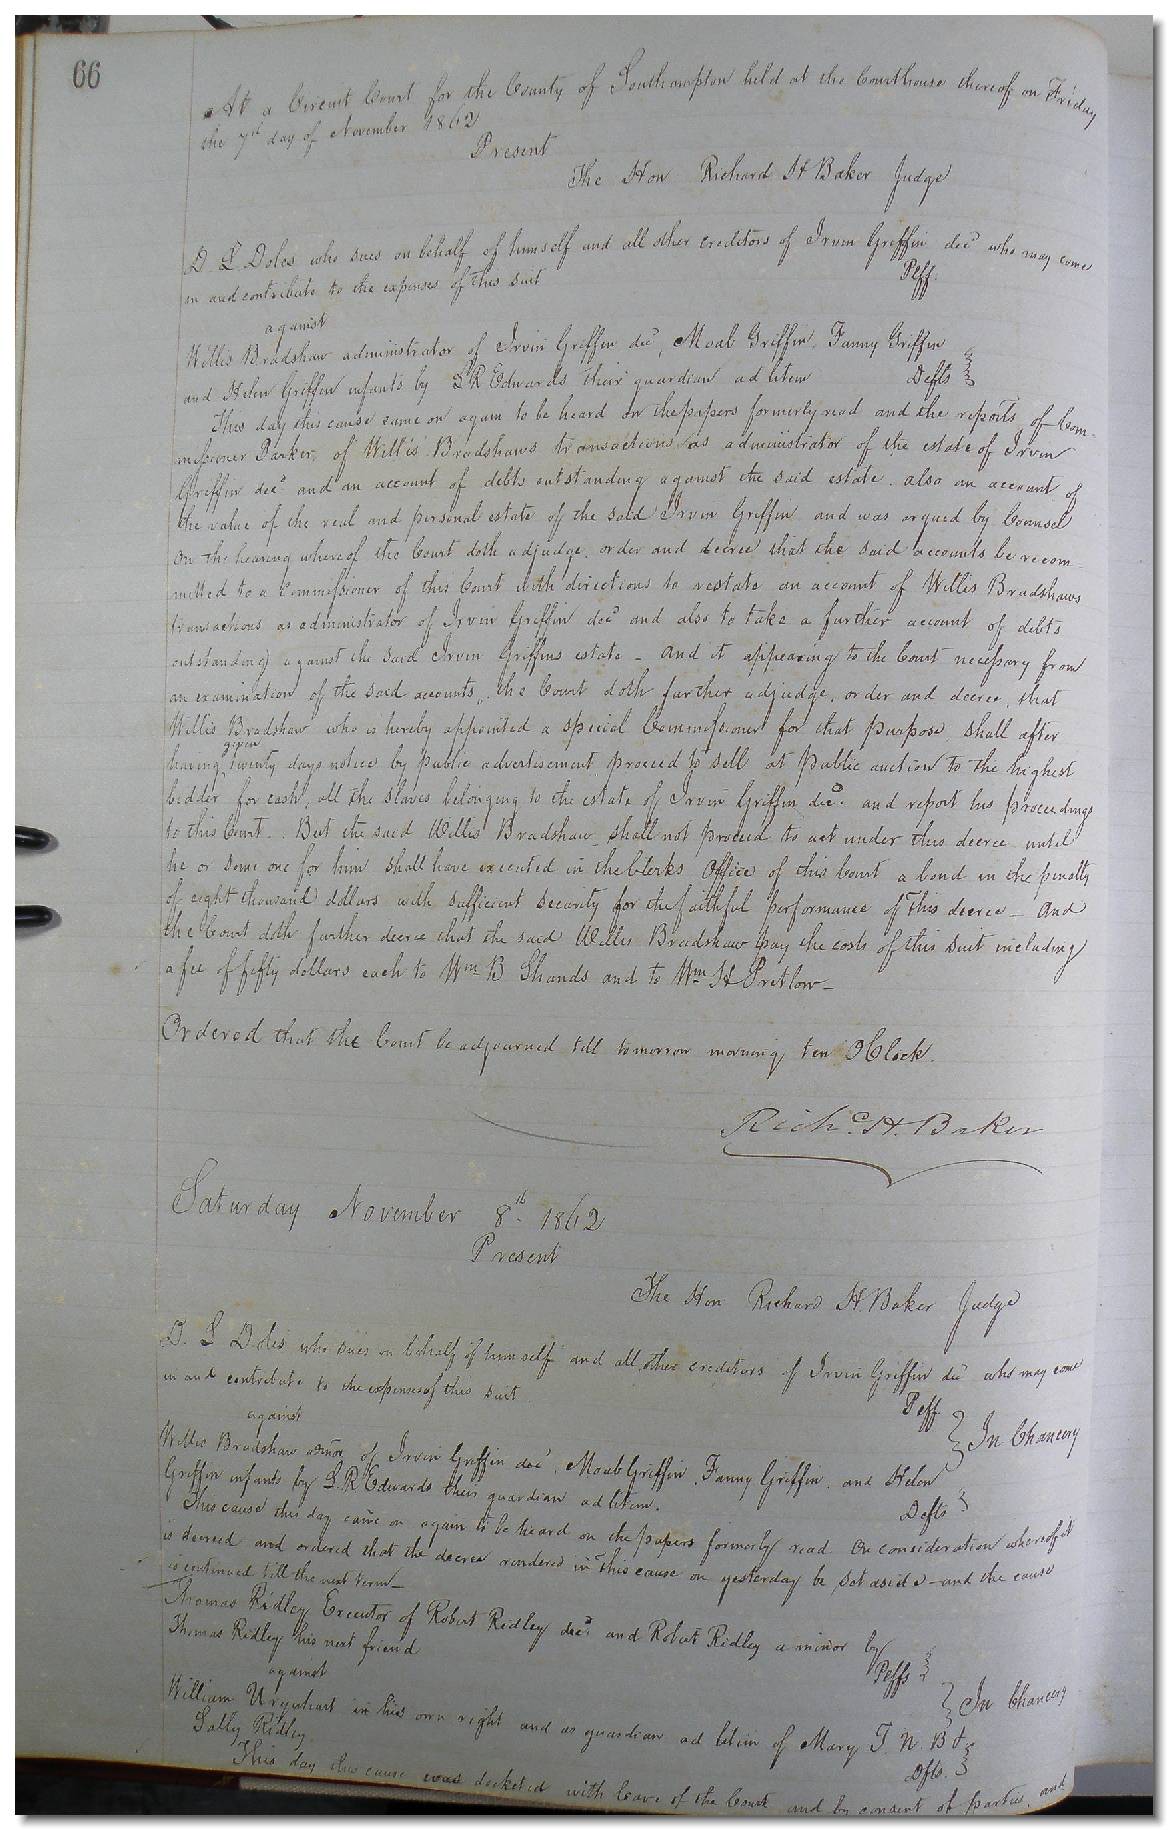 66
At a Circuit Court for the County of Southampton held at the Courthouse thereof on Friday
the 7th day of November 1862
Present
The Hon Richard H Baker Judge
D. L Doles who sues on behalf of himself and all other creditors of Irvin Griffin decd who may come
in and contribute to the expenses of this suit
Plff.
against
Willis Bradshaw administrator of Irvin Griffin decd, Moab Griffin, Fanny Griffin
and Helen Griffin infants by L R Edwards their guardian ad litem
Defts
This day this cause came on again to be heard on the papers formerly read and the reports of Com-
missioner Parker, of Willis Bradshaws transactions as administrator of the estate of Irvin
Griffin decd and an account of debts outstanding against the said estate. also an account of
the value of the real and personal estate of the said Irvin Griffin and was argued by Counsel
On the hearing whereof the Court doth adjudge, order and decree that the said accounts be recom-
mitted to a Commissioner of this Court with directions to restate an account of Willis Bradshaws
transactions as administrator of Irvin Griffin decd and also to take a further account of debts
outstanding against the said Irvin Griffins estate - And it appearing to the Court necessary from
an examination of the said accounts, the Court doth further adjudge, order and decree, that
Willis Bradshaw who is hereby appointed a special Commissioner for that purpose shall after
having given twenty days notice by public advertisement proceed to sell at public auction to the highest
bidder for cash, all the slaves belonging to the estate of Irvin Griffin decd. and report his proceedings
to this Court. But the said Willis Bradshaw, shall not proceed to act under this decree until
he or some one for him shall have executed in the Clerks Office of this Court a bond in the penalty
of eight thousand dollars with sufficient security for the faithful performance of this decree - And
the Court doth further decree that the said Willis Bradshaw pay the costs of this suit including
a fee of fifty dollars each to Wm B Shands and to Wm H Pretlow -
Ordered that the Court be adjourned till tomorrow morning ten OClock.
Richd. H. Baker
Saturday November 8th 1862
Present
The Hon Richard H. Baker Judge
D. L Doles who sues on behalf of himself and all other creditors of Irvin Griffin decd who may come
in and contribute to the expenses of this suit
Plff
against
In Chancery
Willis Bradshaw admor of Irvin Griffin decd, Moab Griffin, Fanny Griffin, and Helen
Griffin infants by L. R Edwards their guardian ad litem.
Defts
This cause this day came on again to be heard on the papers formerly read On consideration whereof it
is decreed and ordered that the decree rendered in this cause on yesterday be set aside - and the cause
is continued till the next term -
Thomas Ridley Executor of Robert Ridley decd. and Robert Ridley a minor by
Thomas Ridley his next friend
Plffs
against
In Chancery
William Urquhart in his own right and as guardian ad litem of Mary T. N. B &
Sally Ridley
Dfts.
This day this cause was docketed with leave of the Court and by consent of parties, and